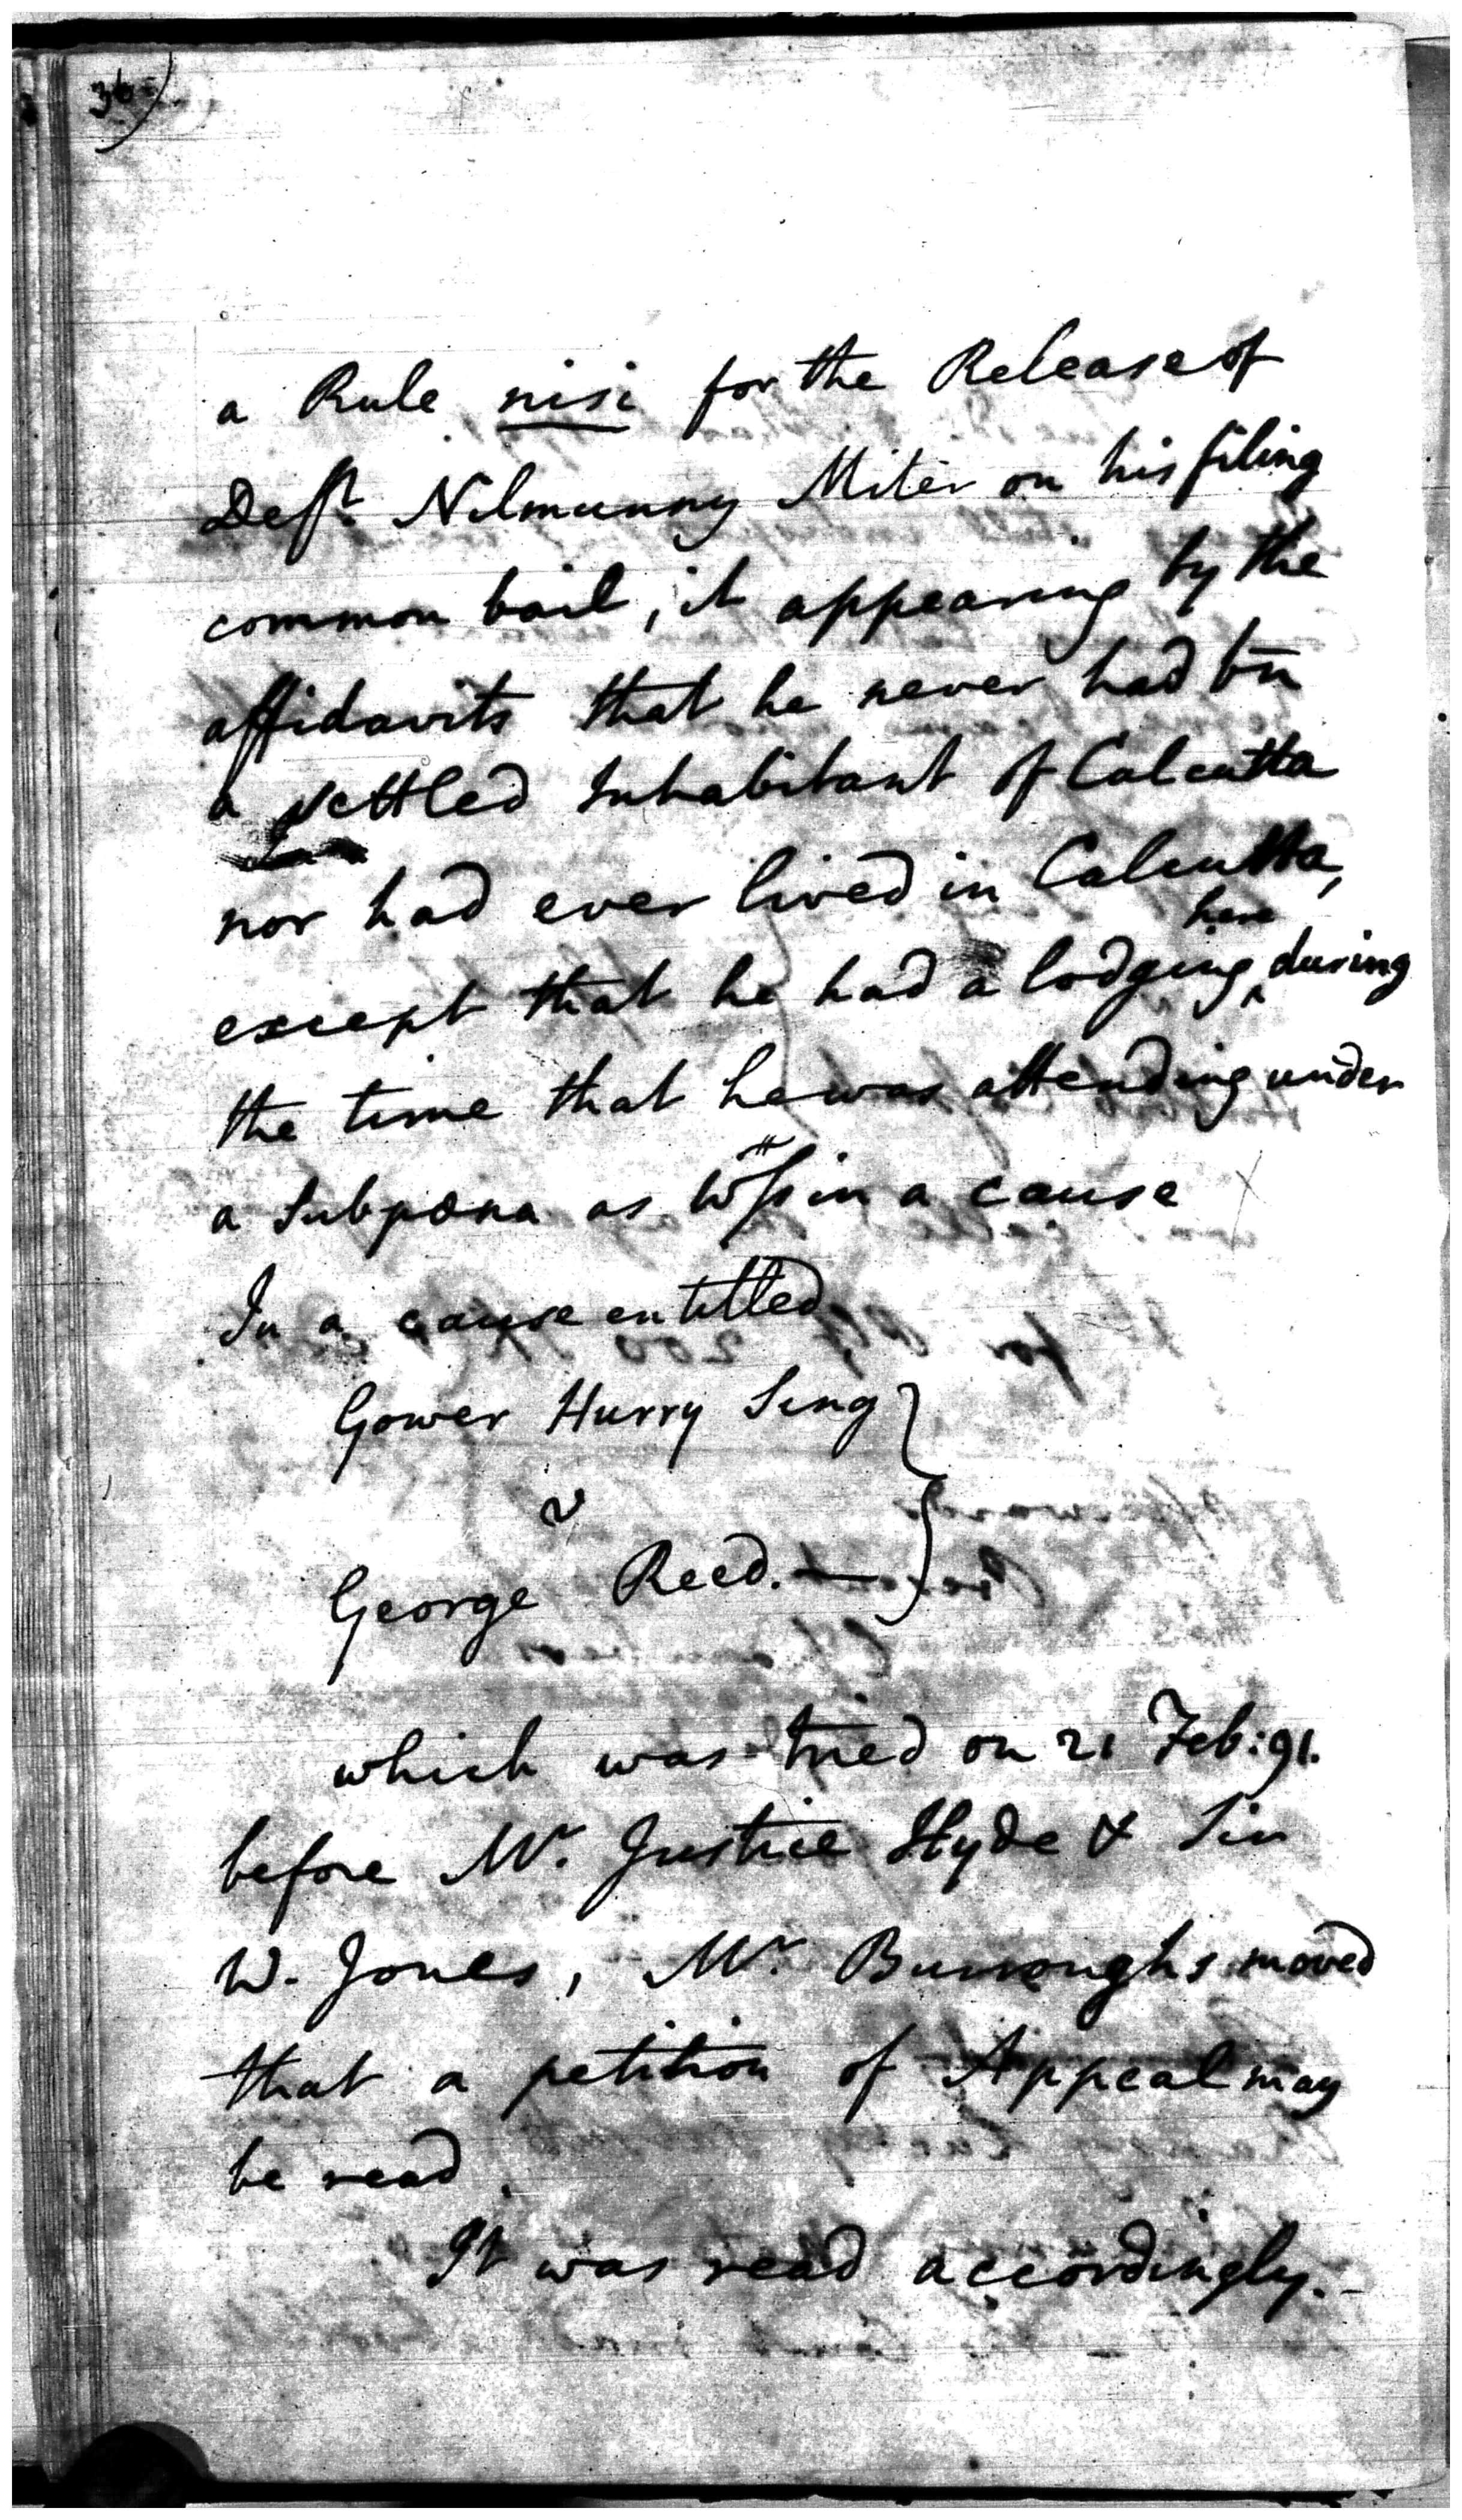 36)
a Rule nisi for the Release of
Deft. Nilmunny Miter on his filing
common bail, it appearing by the
affidavits that he never had bn
a settled Inhabitant of Calcutta
nor had ever lived in Calcutta,
except that he had a lodging here during
the time that he was attending under
a Subpœna as Wss in a cause
In a cause entitled
Gower Hurry Sing
v
George Reed. —
which was tried on 21 Feb: 91.
before Mr. Justice Hyde & Sir
W. Jones, Mr. Burroughs moved
that a petition of Appeal may
be read.
It was read accordingly. -